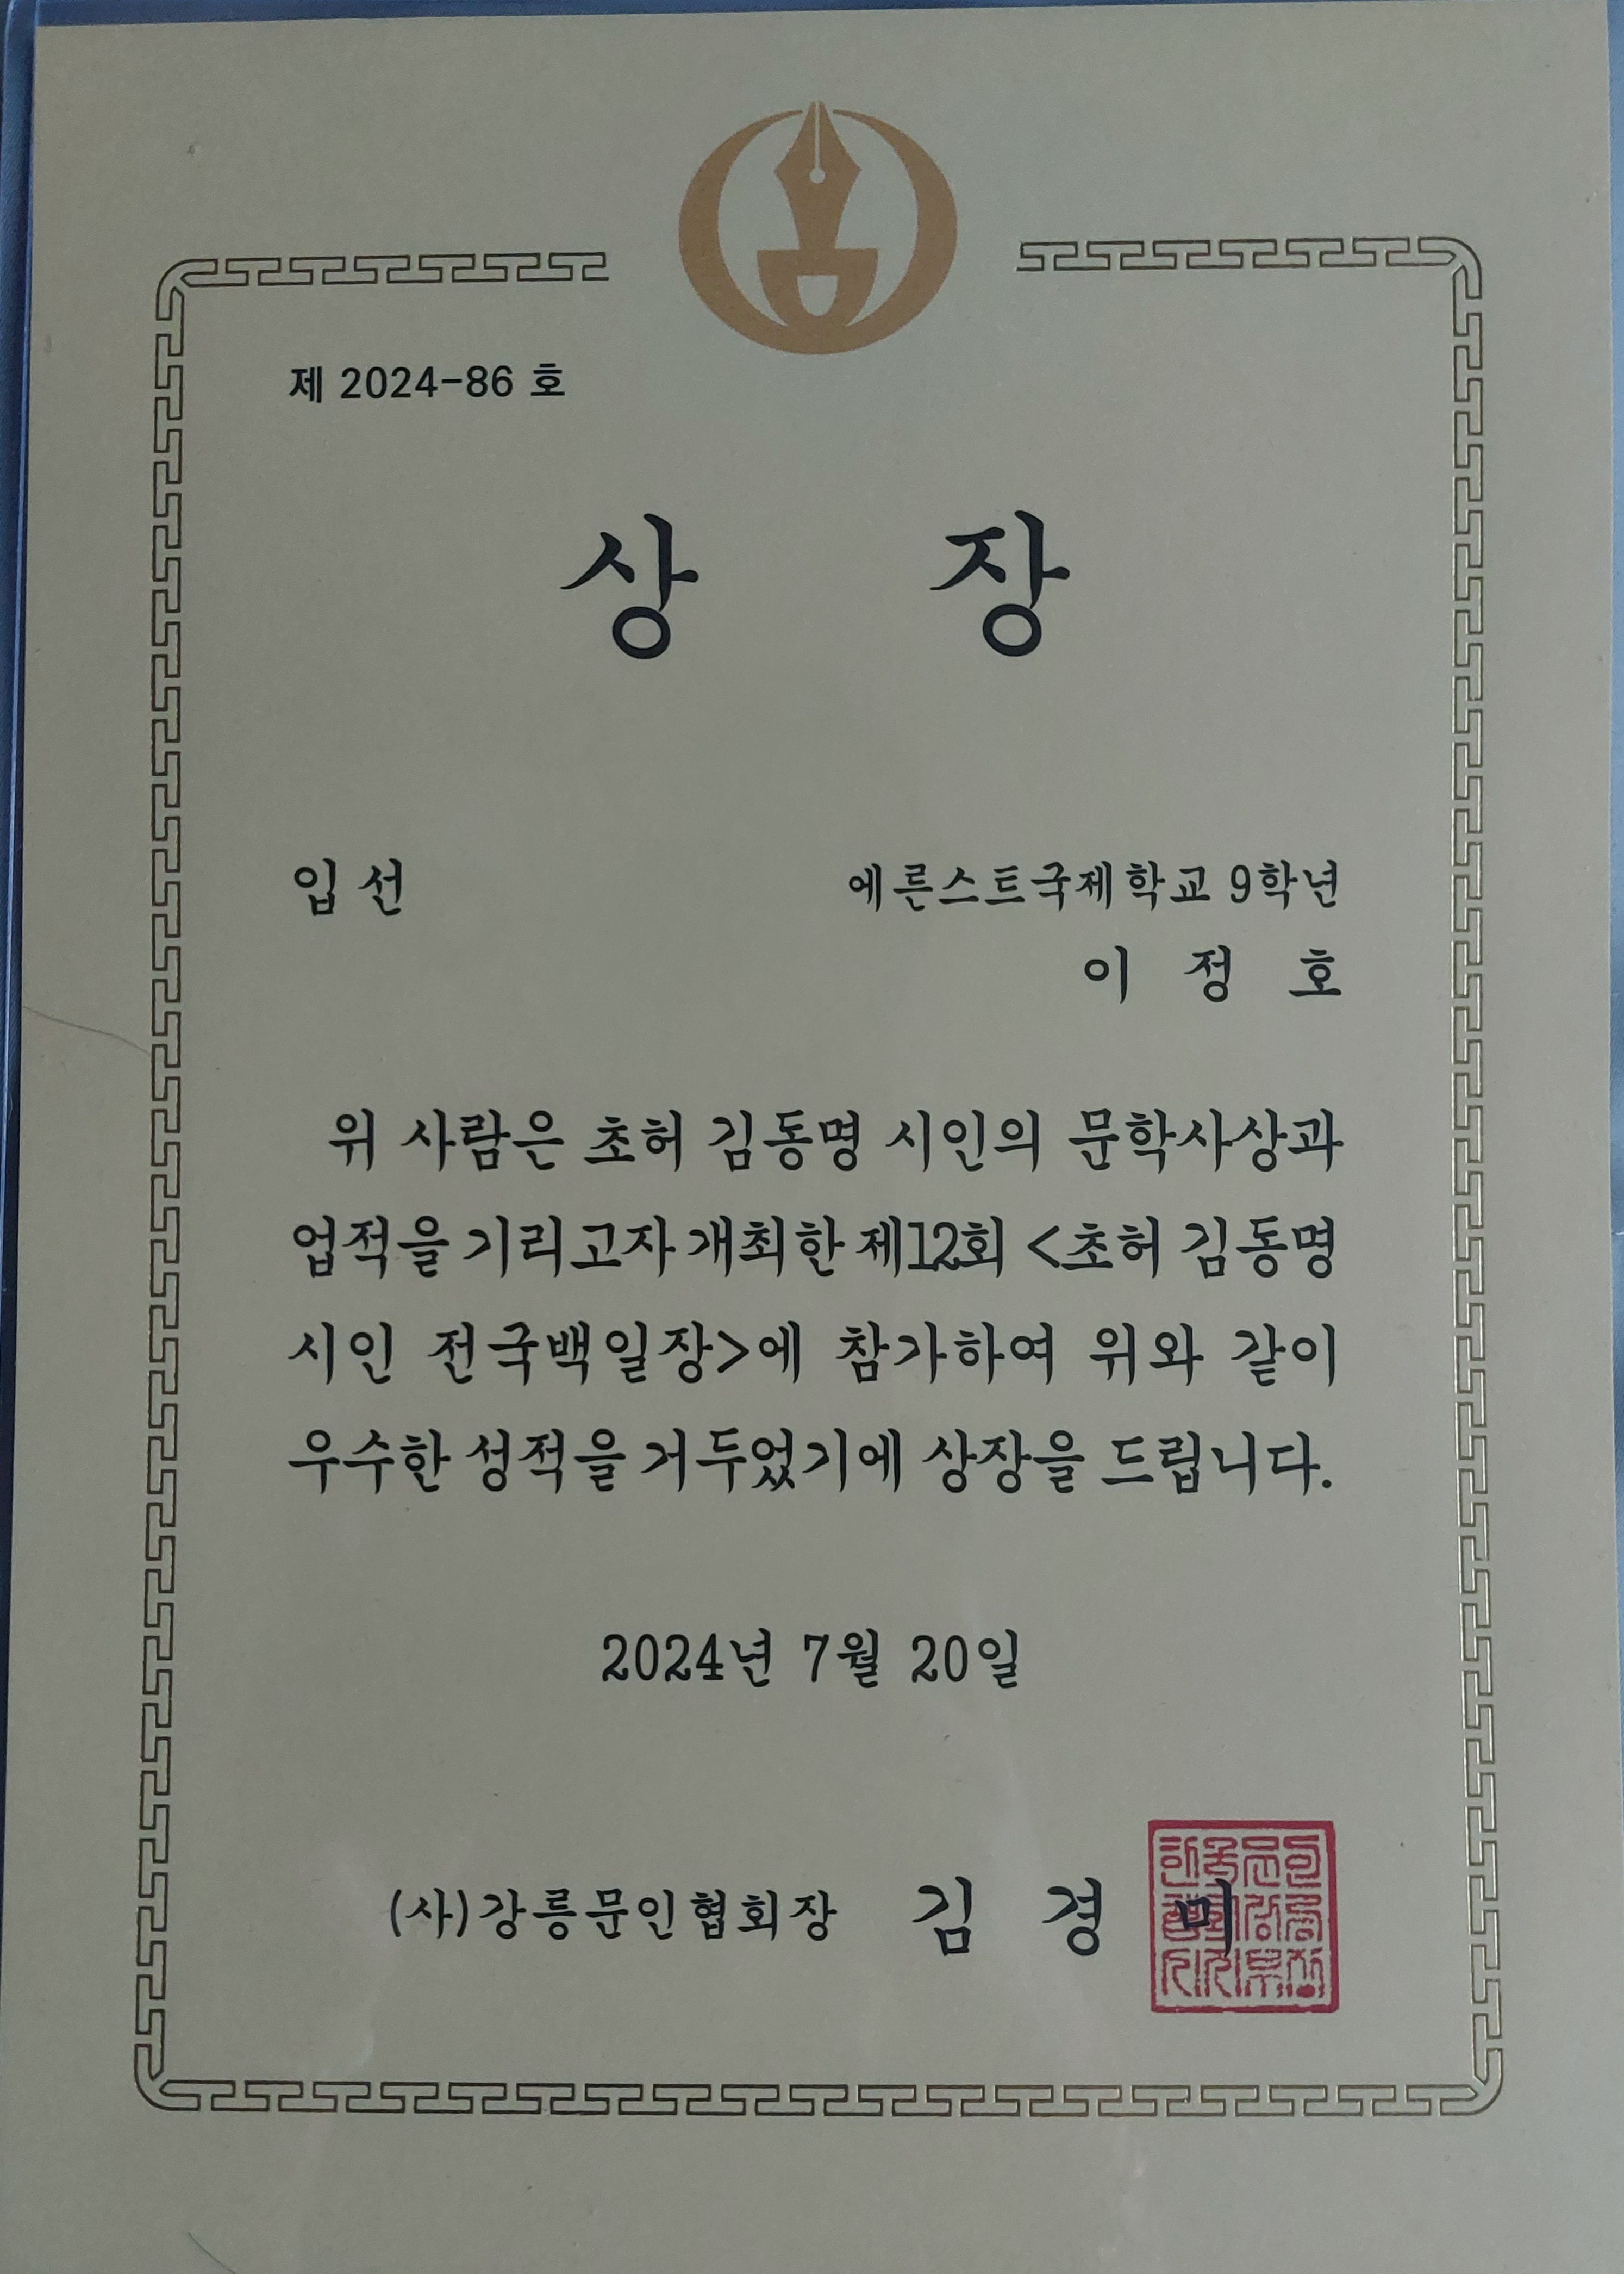 제 2024-86 호
상 장
입 선
에른스트국제학교 9학년
이 정 호
위 사람은 초허 김동명 시인의 문학사상과
업적을 기리고자 개최한 제12회 <초허 김동명
시인 전국백일장>에 참가하여 위와 같이
우수한 성적을 거두었기에 상장을 드립니다.
2024년 7월 20일
(사)강릉문인협회장 김 경 미